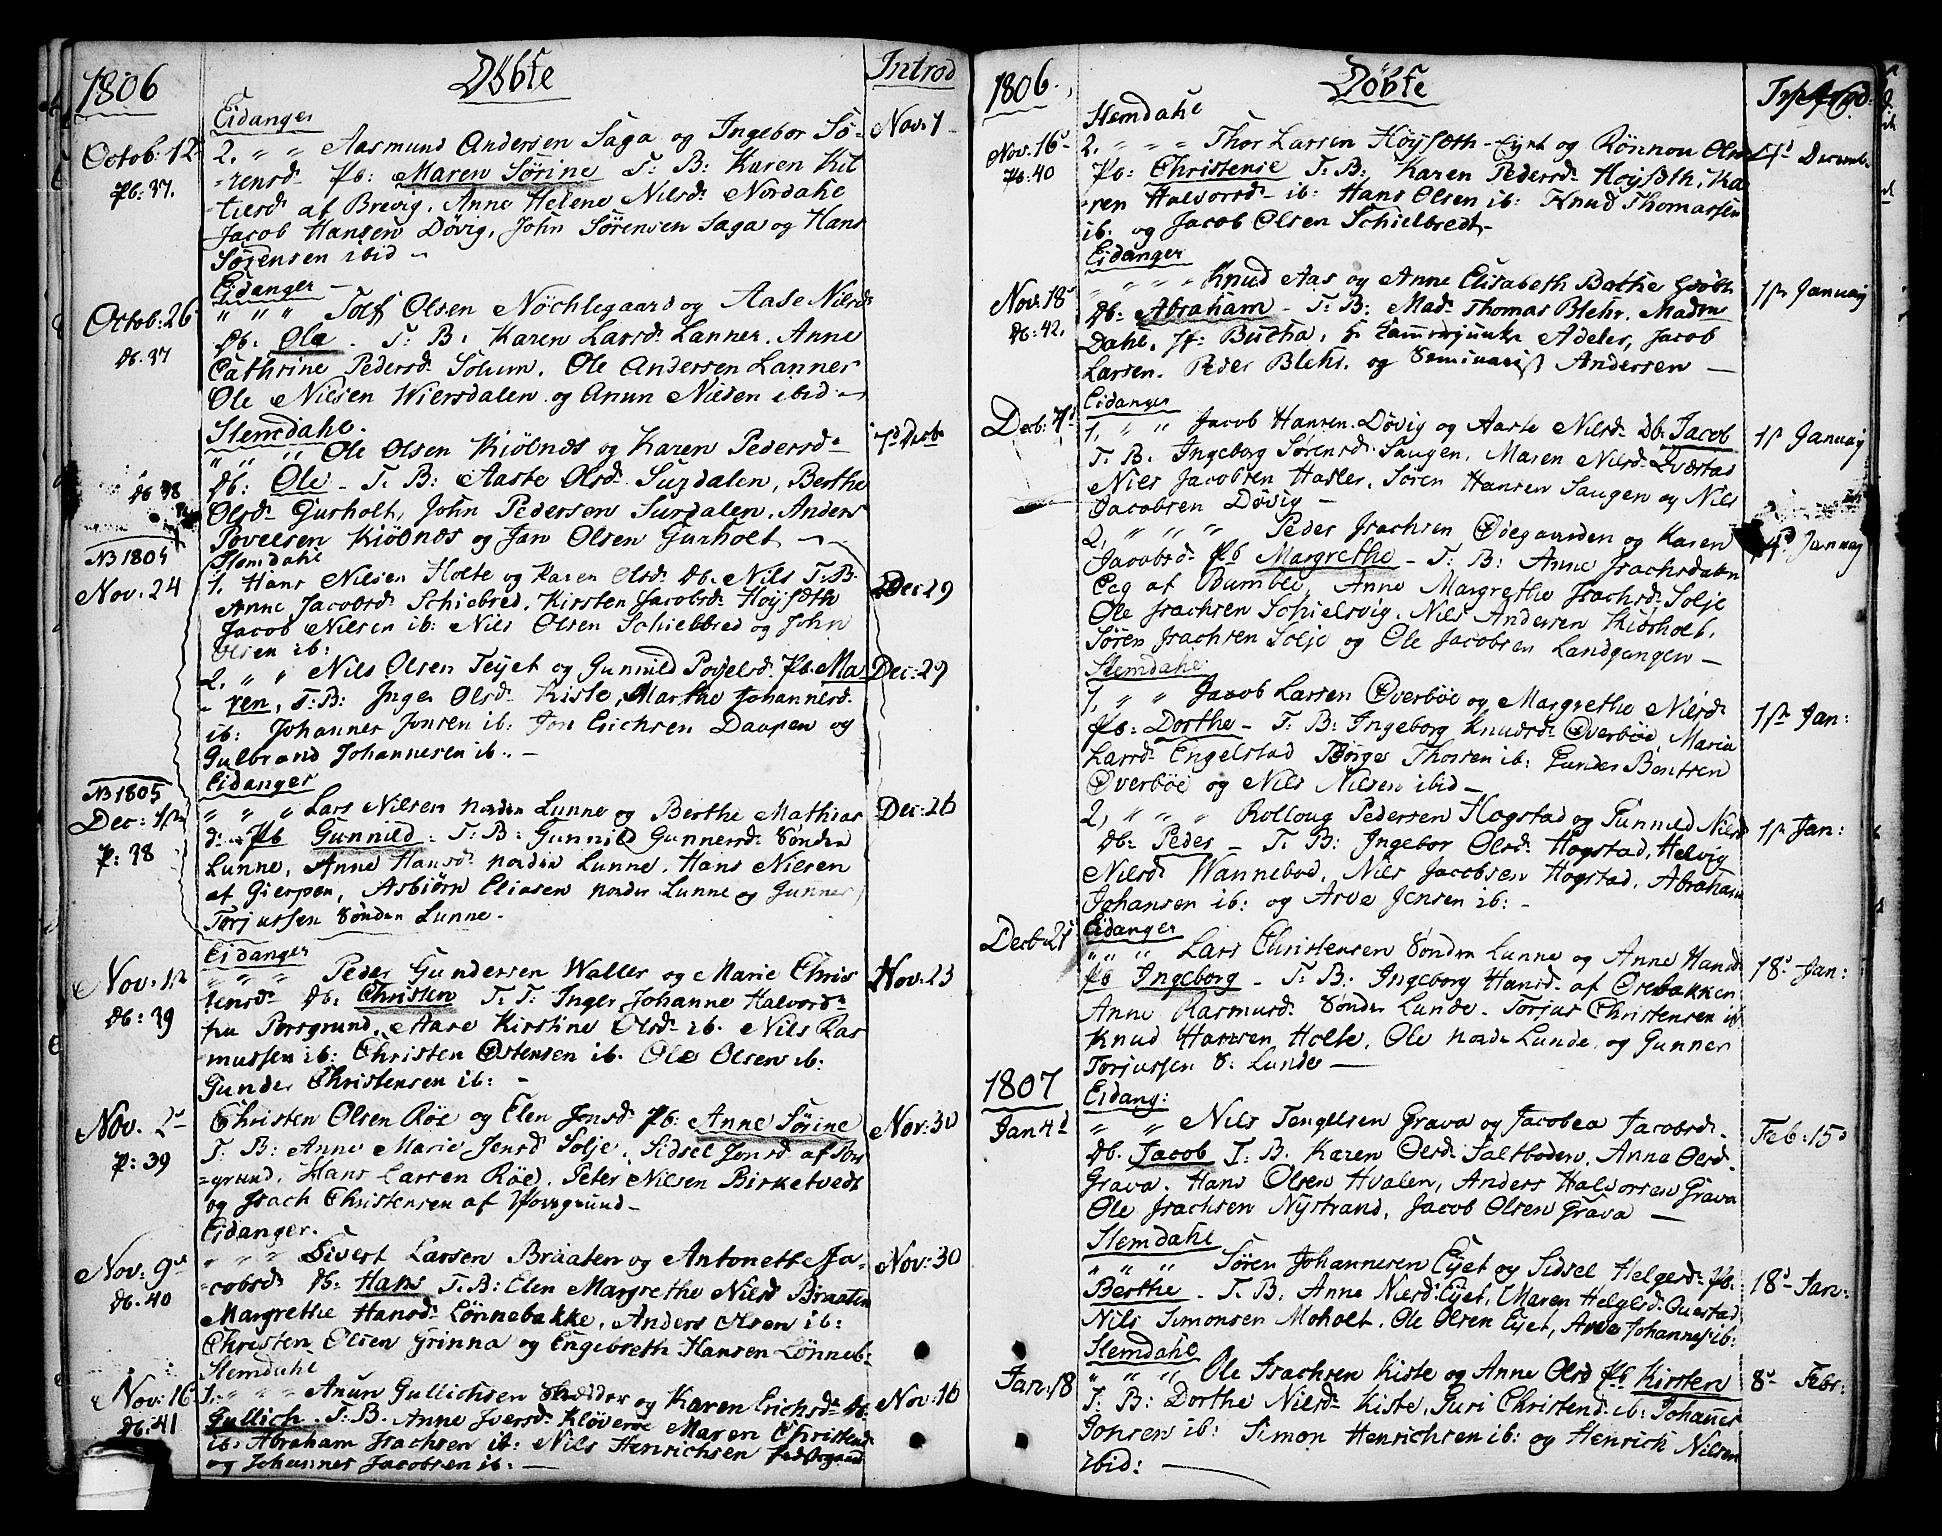 1806
Döbte
Introd
Eidanger
Octob: 12
2. " " Aasmund Andersen Saga og Ingebor Sö-
Nov: 1
Pb: 37.
-rensd: Pb: Maren Sörine T: B: Karen Kit
tilsd: af Brevig, Anne Helene Nilsd: Nordahl
Jacob Hansen Dövig, John Sörensen Saga og Hans
Sörensen ibid -
Eidanger -
Octob: 26
" " " Tolf Olsen Nöchlegaard og Aase Nilsd:
Db. 37
Db. Ole. T: B: Karen Larsd: Lanner. Anne
Cathrine Pedersd: Solum. Ole Andersen Lanner
Ole Nilsen Wiersdalen og Anun Nilsen ibid -
Slemdahl.
" " " Ole Olsen Kiölnes og Karen Pedersd:
7d Decb
Db 38
Db: Ole - T: B: Aaste Olsd: Surdalen, Berthe
Olsd: Gurholt, John Pedersen Surdalen, Anders
Povelsen Kiölnes og Jan Olsen Gurholt -
NB 1805
Slemdahl
Nov: 24
1. Hans Nilsen Holte og Karen Olsd: Db. Nils T: B:
Dec: 29
Anne Jacobsd: Schiebred, Kirsten Jacobsd: Höysæth
Jacob Nilsen ib: Nils Olsen Schiebbred og John
Olsen ib:
2. " " Nils Olsen Teyet og Gunnild Povelsd: Pb: Ma-
Dec: 29
- ren, T: B: Inger Olsd: Kiste, Marthe Johannesd:
ib: Johannes Jonsen ib: Jon Erichsen Daupen og
Gulbrand Johannesen ib: -
NB 1805
Eidanger
Dec: 1ste
" " " Lars Nilsen norden Lunne og Berthe Mathias
Dec: 26
P: 38
d: Pb Gunnild - T: B: Gunnild Gunnersd: Sönden
Lunne, Anne Hansd: norden Lunne. Hans Nilsen
af Gierpen, Asbiörn Eliasen norden Lunne og Gunner
Torjussen Sönden Lunne -
Eidanger
Nov: 1ste
" " " Peder Gundersen Waller og Marie Chris
Nov: 23
Db: 39
tensd: Db: Christen T: T: Inger Johanne Halvorsd:
fra Porsgrund, Aase Kirstine Olsd: ib. Nils Ras
mussen ib: Christen Östensen ib. Ole Olsen ib:
Gunder Christensen ib: -
Nov. 2d
Christen Olsen Röe og Elen Jonsd: Pb: Anne Sörine
Nov: 30
P: 39
T: B: Anne Marie Jensd Solje. Sidsel Jonsd af Pors
=grund, Hans Larsen Röe, Peter Nilsen Birketvedt
og Isach Christensen af Porsgrund -
Eidanger.
Nov: 9de
" " " Sivert Larsen Braaten og Antonett Ja-
Nov: 30
Db. 40
=cobsd: Db: Hans T: B: Elen Margrethe Nilsd Braaten
Margrethe Hansd: Lönnebakke, Anders Olsen ib:
Christen Olsen Grinna og Engebreth Hansen Lönneb-
Slemdahl
Nov: 16
1. " " Anun Gullichsen og Karen Erichsd: Db:
Nov: 16
Db: 41
Gullich. T: B. Anne Iversd: Klöveröe Maren Christend:
ib: Abraham Isachsen ib: Nils Henrichsen
og Johannes Jacobsen ib: -
1806.
Döbte
Slemdahl
Nov: 16d
2. " " " Thor Larsen Höysæth - Eyet og Rönnou Olsd:
Decemb:
Pb: 40
Pb: Christense T: B: Karen Pedersd: Höysæth, Ka
-ren Halvorsd: ib: Hans Olsen ib: Knud Thomassen
ib: og Jacob Olsen Schielbredt -
Eidanger
Nov: 18
" " " Knud Aas og Anne Elisabeth Bothe
1ste Januarj
Db: 42.
Db: Abraham - T: B: Mad: Thomas Blehr. Madm
Dahl, Jf: Butha, Kammerjunker Adeler, Jacob
Larsen. Peder Blehr. og Seminarist Andersen -
Eidanger
Decb: 7d
1. " " Jacob Hansen Dövig og Aaste Nilsd: Db. Jacob
1ste Januarj
T: B. Ingeborg Sörensd: Saugen, Maren Nilsd: Tvæstad
Niels Jacobsen Hasler, Sören Hansen Saugen og Nils
Jacobsen Dövig -
2, " " " Peder Isachsen Ödegaarden og Karen
Januarj
Jacobsd: Pb Margrethe - T: B: Anne Isachsdatn
Eeg af Bamble, Anne Margrethe Isachsd: Solje
Ole Isachsen Schielsvig. Nils Andersen Kiörholt,
Sören Isachsen Solje og Ole Jacobsen Landgangen -
Slemdahl
1, " " Jacob Larsen Överböe og Margrethe Nilsd:
1ste Jan:
Pb: Dorthe - T: B: Ingeborg Knudsd: Överböe, Maria
Larsd: Engelstad Börge Thorsen ib: Gunder Bentsen
Överböe og Nils Nilsen ibid -
2, " " " Rolloug Pedersen Hogstad og Gunnild Nilsd
1ste Jan:
Db: Peder - T: B: Ingebor Olsd: Hogstad, Helvig
Nilsd: Wanneboe, Nils Jacobsen Hogstad, Abraham
Johansen ib: og Arve Jensen ib: -
Decb 21
Eidanger
" " " Lars Christensen Sönden Lunne og Anne Hansd:
18d Jan:
Pb Ingeborg - T: B: Ingeborg Hansd: af Örebakken
Anne Rasmusd: Sönden Lunde - Torjus Christensen ib
Knud Hansen Holte, Ole norden Lunde, og Gunner
Torjussen S: Lunde -
1807
Eidang:
Jan 4d
" " Nils Tengelsen Grava og Jacobea Jacobsd:
Feb: 15d
Db. Jacob T: B. Karen Olsd: Saltboden, Anne Olsd:
Grava. Hans Olsen Hvalen, Anders Halvorsen Grava
Ole Isachsen Nystrand, Jacob Olsen Grava -
Slemdahl
" " " Sören Johannesen Eyet og Sidsel Helgesd: Pb:
18d Jan:
Berthe - T. B. Anne Nilsd: Eyet, Maren Helgesd: Ouestad
Nils Simonsen Moholt. Ole Olsen Eyet, Arve Johannes: ib:
Slemdahl
Jan: 18
" " " Ole Isachsen Kiste og Anne Olsd Pb Kirsten
8d Febr:
T: B: Dorthe Nilsd: Kiste, Guri Christend: ib: Johannes
Jonsen ib: Simon Henrichsen ib: og Henrich Nilsen
ibid: -